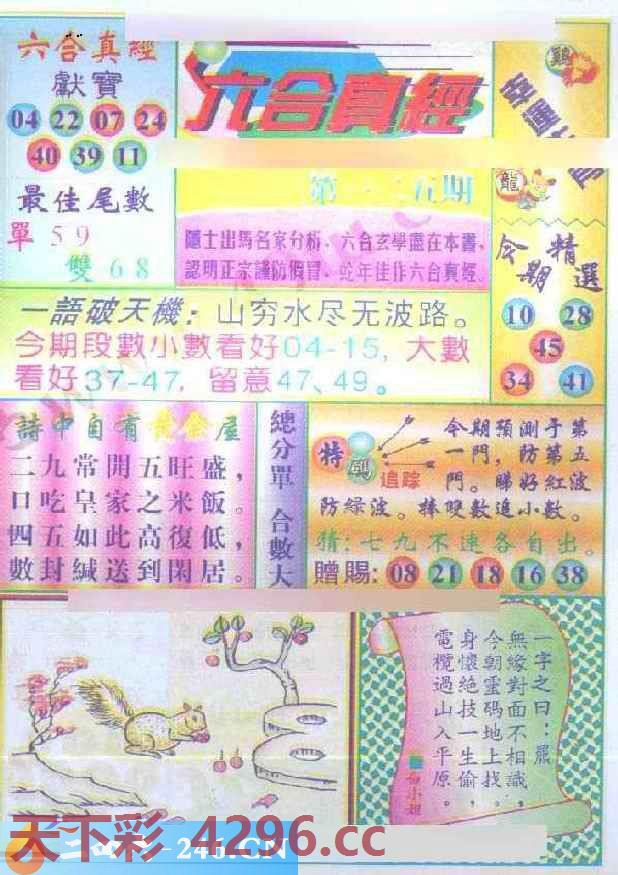 六合真經
獻寶
04 22 07 24
40 39 11
最佳尾數
單 5 9
雙 6 8
六合真經
隱士出馬名家分析、六合玄學盡在本書、
認明正宗謹防假冒、蛇年佳作六合真經.
鷄
龍
今期精選
10 28
45
34 41
一語破天機：山穷水尽无波路。
今期段數小數看好04-15, 大數
看好37-47, 留意47、49。
詩中自有黃金屋
二九常開五旺盛，
口吃皇家之米飯。
四五如此高復低，
數封緘送到閑居。
總分單 合數大
特碼
追踪
今期預測于第
一門，防第五
門。睇好紅波
防綠波。捧雙數追小數。
猜：七九不連各自出。
贈賜：08 21 18 16 38
一字之曰：羆
無緣對面不相識，
今朝靈碼地上找。
身懷絕技一生偷，
電欖過山入平原。
天下彩 4296.cc
246.CN